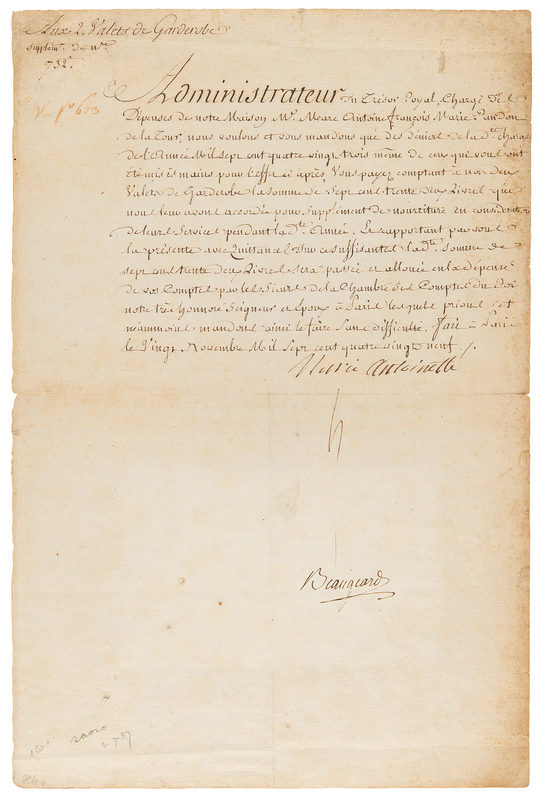 Aux 2 Valets de Garderobe
supplem.t de N.re
732.#
V. f.o 623
Administrateur du Trésor Royal, Chargé des
Dépenses de notre Maison M.r Marc Antoine françois Marie Randon
de la Tour, nous voulons et vous mandons que des deniers de la d.e charge
de l'Année Mil sept cent quatre vingt trois même de ceux qui vous ont
été mis ès mains pour l'effet ci après, Vous payez comptant à nos deux
Valets de Garderobe la somme de Sept cent trente deux Livres que
nous leur avons accordée pour Supplément de nourriture en considération
de leurs Services pendant la d.te Année. Et rapportant par vous
la présente avec Quittances sur ce suffisantes la d.te Somme de
sept cent trente deux Livres sera passée et allouée en la dépense
de vos Comptes par les Sieurs de la Chambre des Comptes du Roi
notre très honnoré Seigneur et Epoux à Paris lesquels prions et
néammoins mandons ainsi le faire sans difficulté. Fait à Paris
le Vingt Novembre Mil Sept cent quatre vingt neuf ./.
Marie Antoinette
Beaugeard